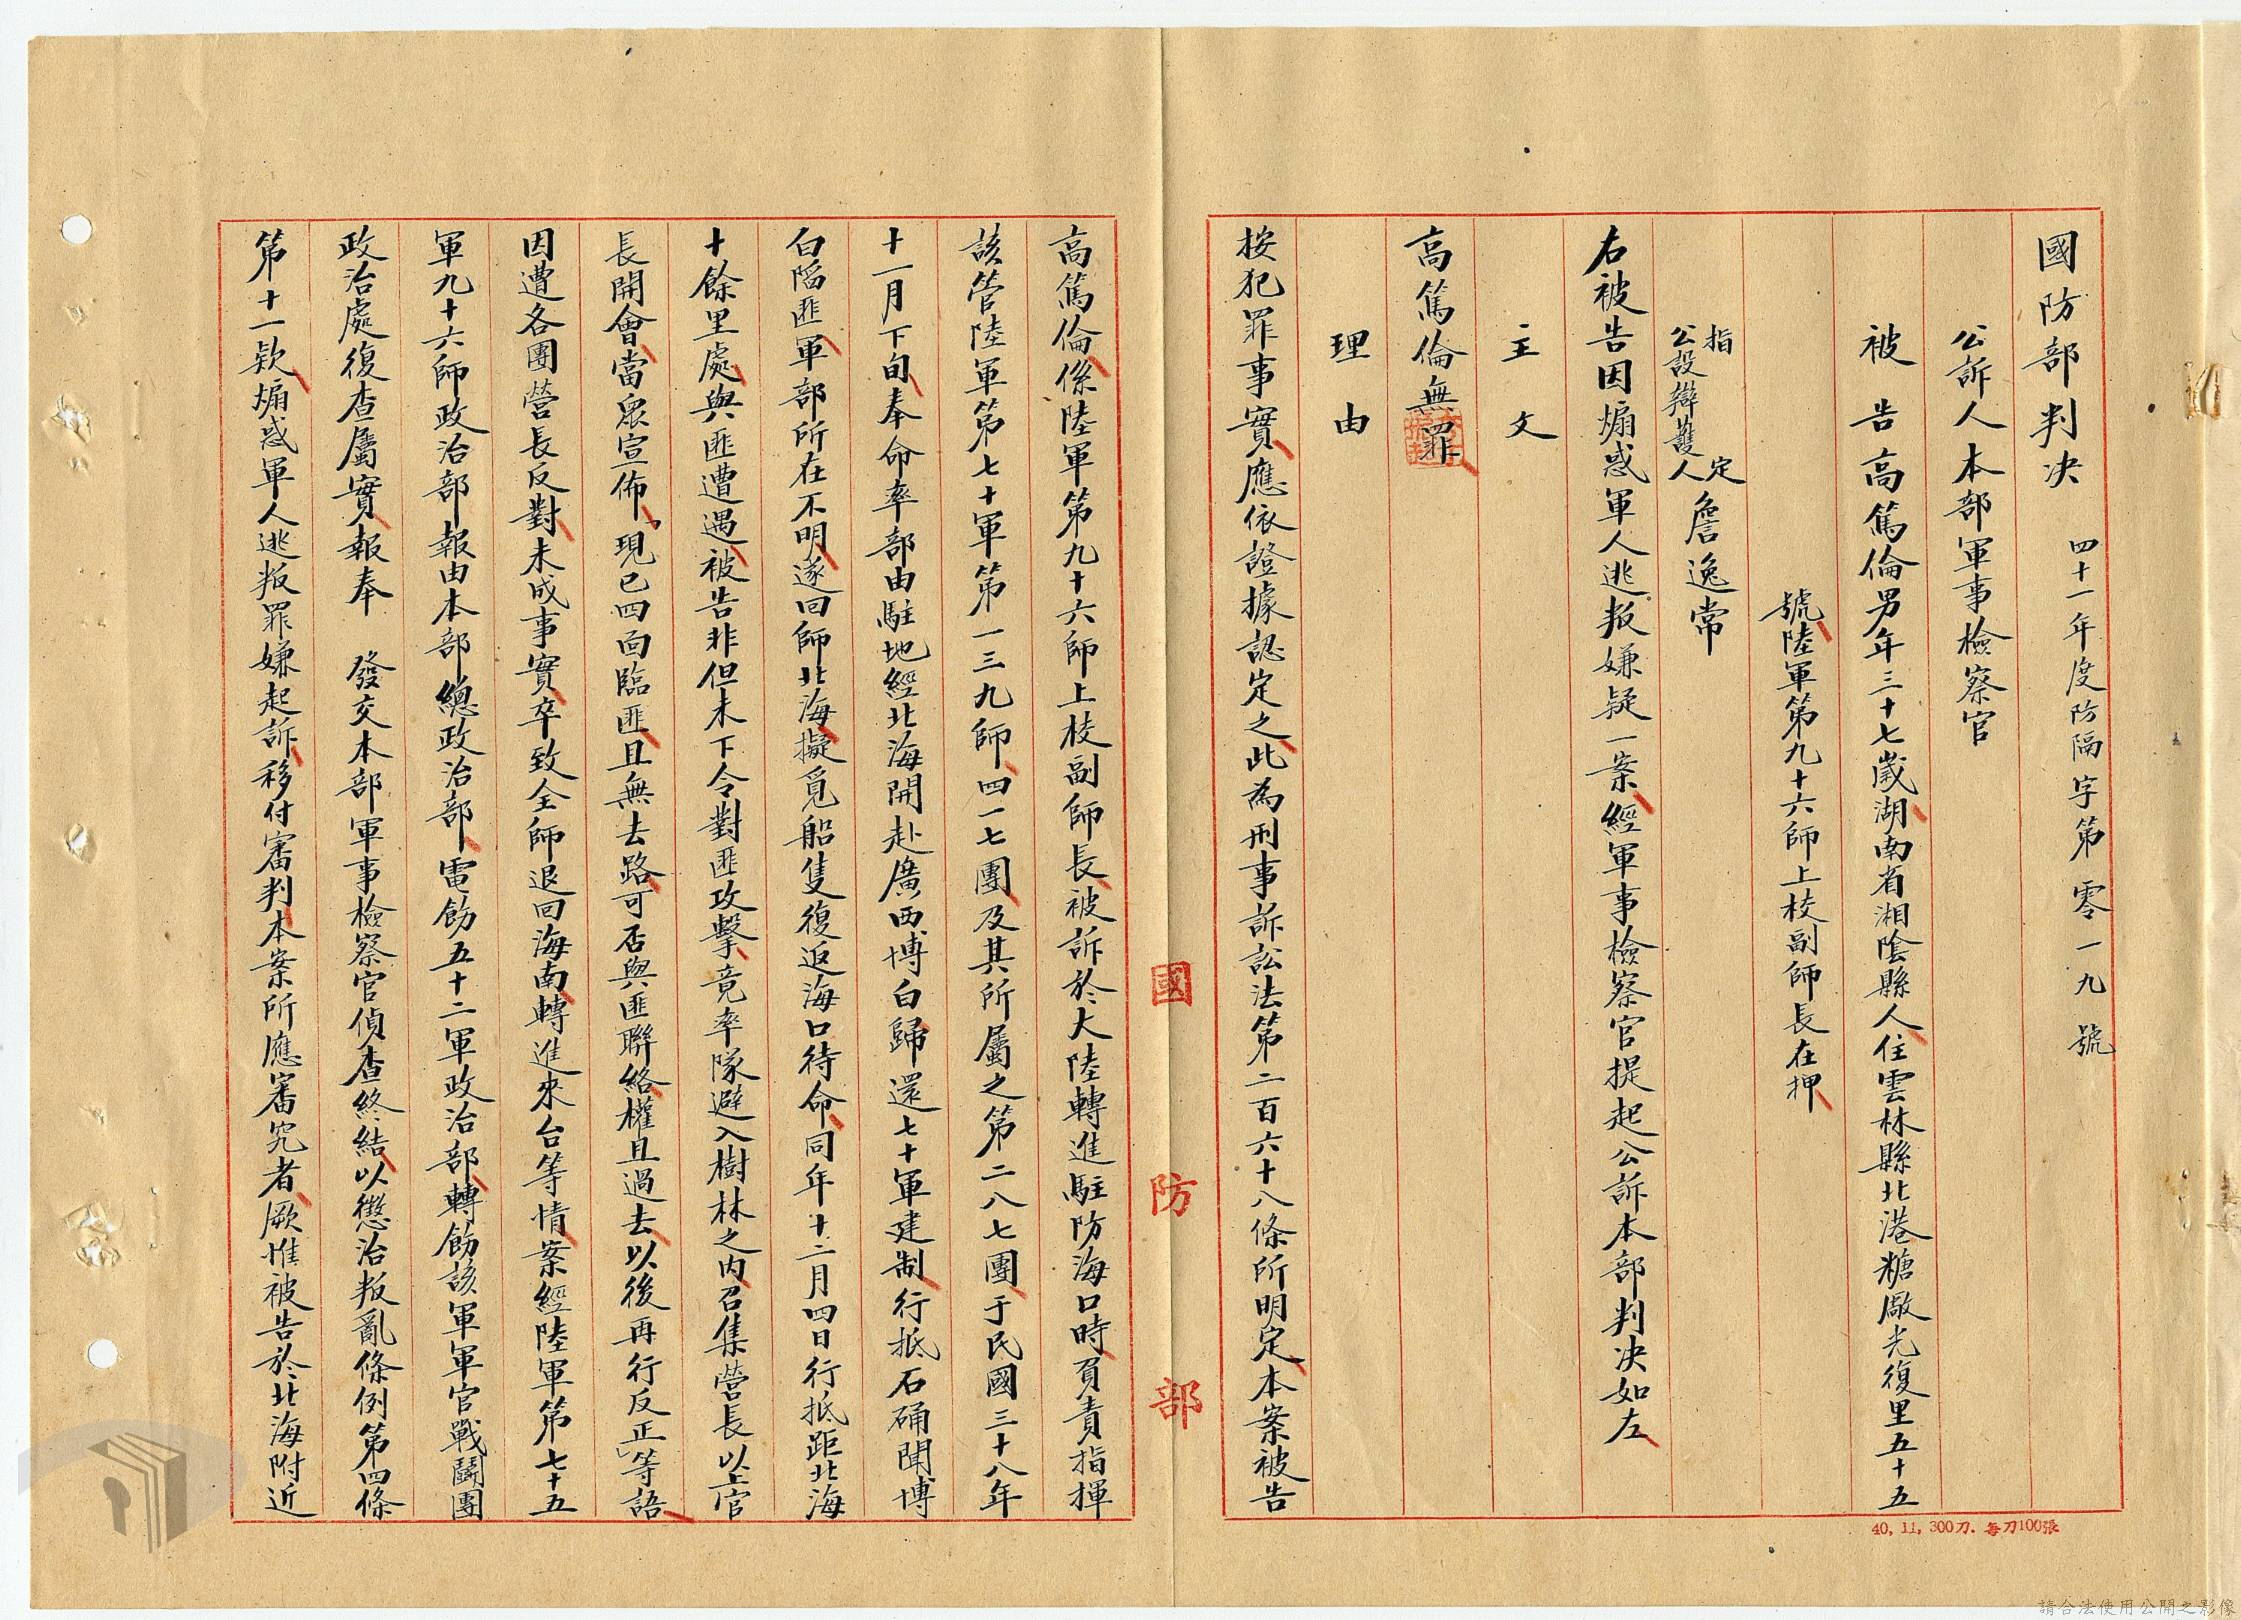 國防部判决　四十一年度防隔字第零一九號
公訴人本部軍事檢察官
被告高篤倫男年三十七歲湖南省湘陰縣人住雲林縣北港糖廠光復里五十五
號陸軍第九十六師上校副師長在押
指定
公設辯護人
詹逸常
右被告因煽惑軍人逃叛嫌疑一案經軍事檢察官提起公訴本部判决如左
主文
高篤倫無罪
理由
按犯罪事實應依證據認定之此為刑事訴訟法第二百六十八條所明定本案被告
國防部
高篤倫係陸軍第九十六師上校副師長被訴於大陸轉進駐防海口時負責指揮
該管陸軍第七十軍第一三九師四一七團及其所屬之第二八七團于民國三十八年
十一月下旬奉命率部由駐地經北海開赴廣西博白歸還七十軍建制行抵石硧聞博
白陷匪軍部所在不明遂回師北海擬覓船隻復返海口待命同年十二月四日行抵距北海
十餘里處與匪遭遇被告非但未下令對匪攻擊竟率隊避入樹林之內召集營長以上官
長開會當眾宣佈「現已四面臨匪且無去路可否與匪聯絡權且過去以後再行反正」等語
因遭各團營長反對未成事實卒致全師退回海南轉進來台等情案經陸軍第七十五
軍九十六師政治部報由本部總政治部電飭五十二軍政治部轉飭該軍軍官戰鬪團
政治處復查屬實報奉　發交本部軍事檢察官偵查終結以懲治叛亂條例第四條
第十一款煽惑軍人逃叛罪嫌起訴移付審判本案所應審究者厥惟被告於北海附近
40, 11, 300刀. 每刀100張
請合法使用公開之影像